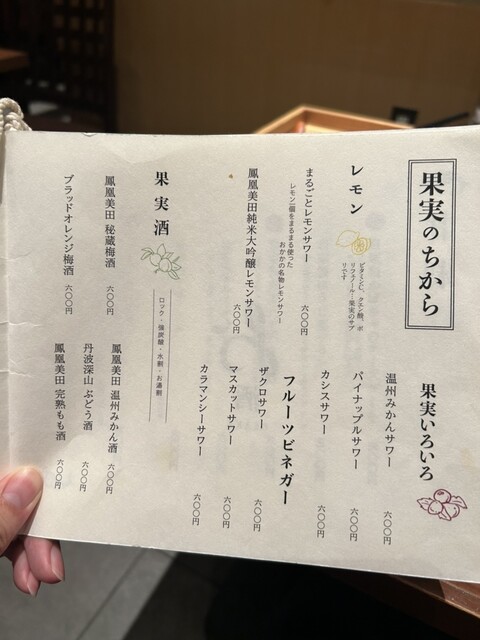 果実のちから
レモン
ビタミンC、クエン酸、ポ
リフェノール…果実のサプ
リです
まるごとレモンサワー 六〇〇円
レモン一個をまるまる使った
おかかの名物レモンサワー
鳳凰美田純米大吟醸レモンサワー 六〇〇円
果実いろいろ
温州みかんサワー 六〇〇円
パイナップルサワー 六〇〇円
カシスサワー 六〇〇円
フルーツビネガー
ザクロサワー 六〇〇円
マスカットサワー 六〇〇円
カラマンシーサワー 六〇〇円
果実酒
ロック・強炭酸・水割・お湯割
鳳凰美田 秘蔵梅酒 六〇〇円
ブラッドオレンジ梅酒 六〇〇円
鳳凰美田 温州みかん酒 六〇〇円
丹波深山 ぶどう酒 六〇〇円
鳳凰美田 完熟もも酒 六〇〇円